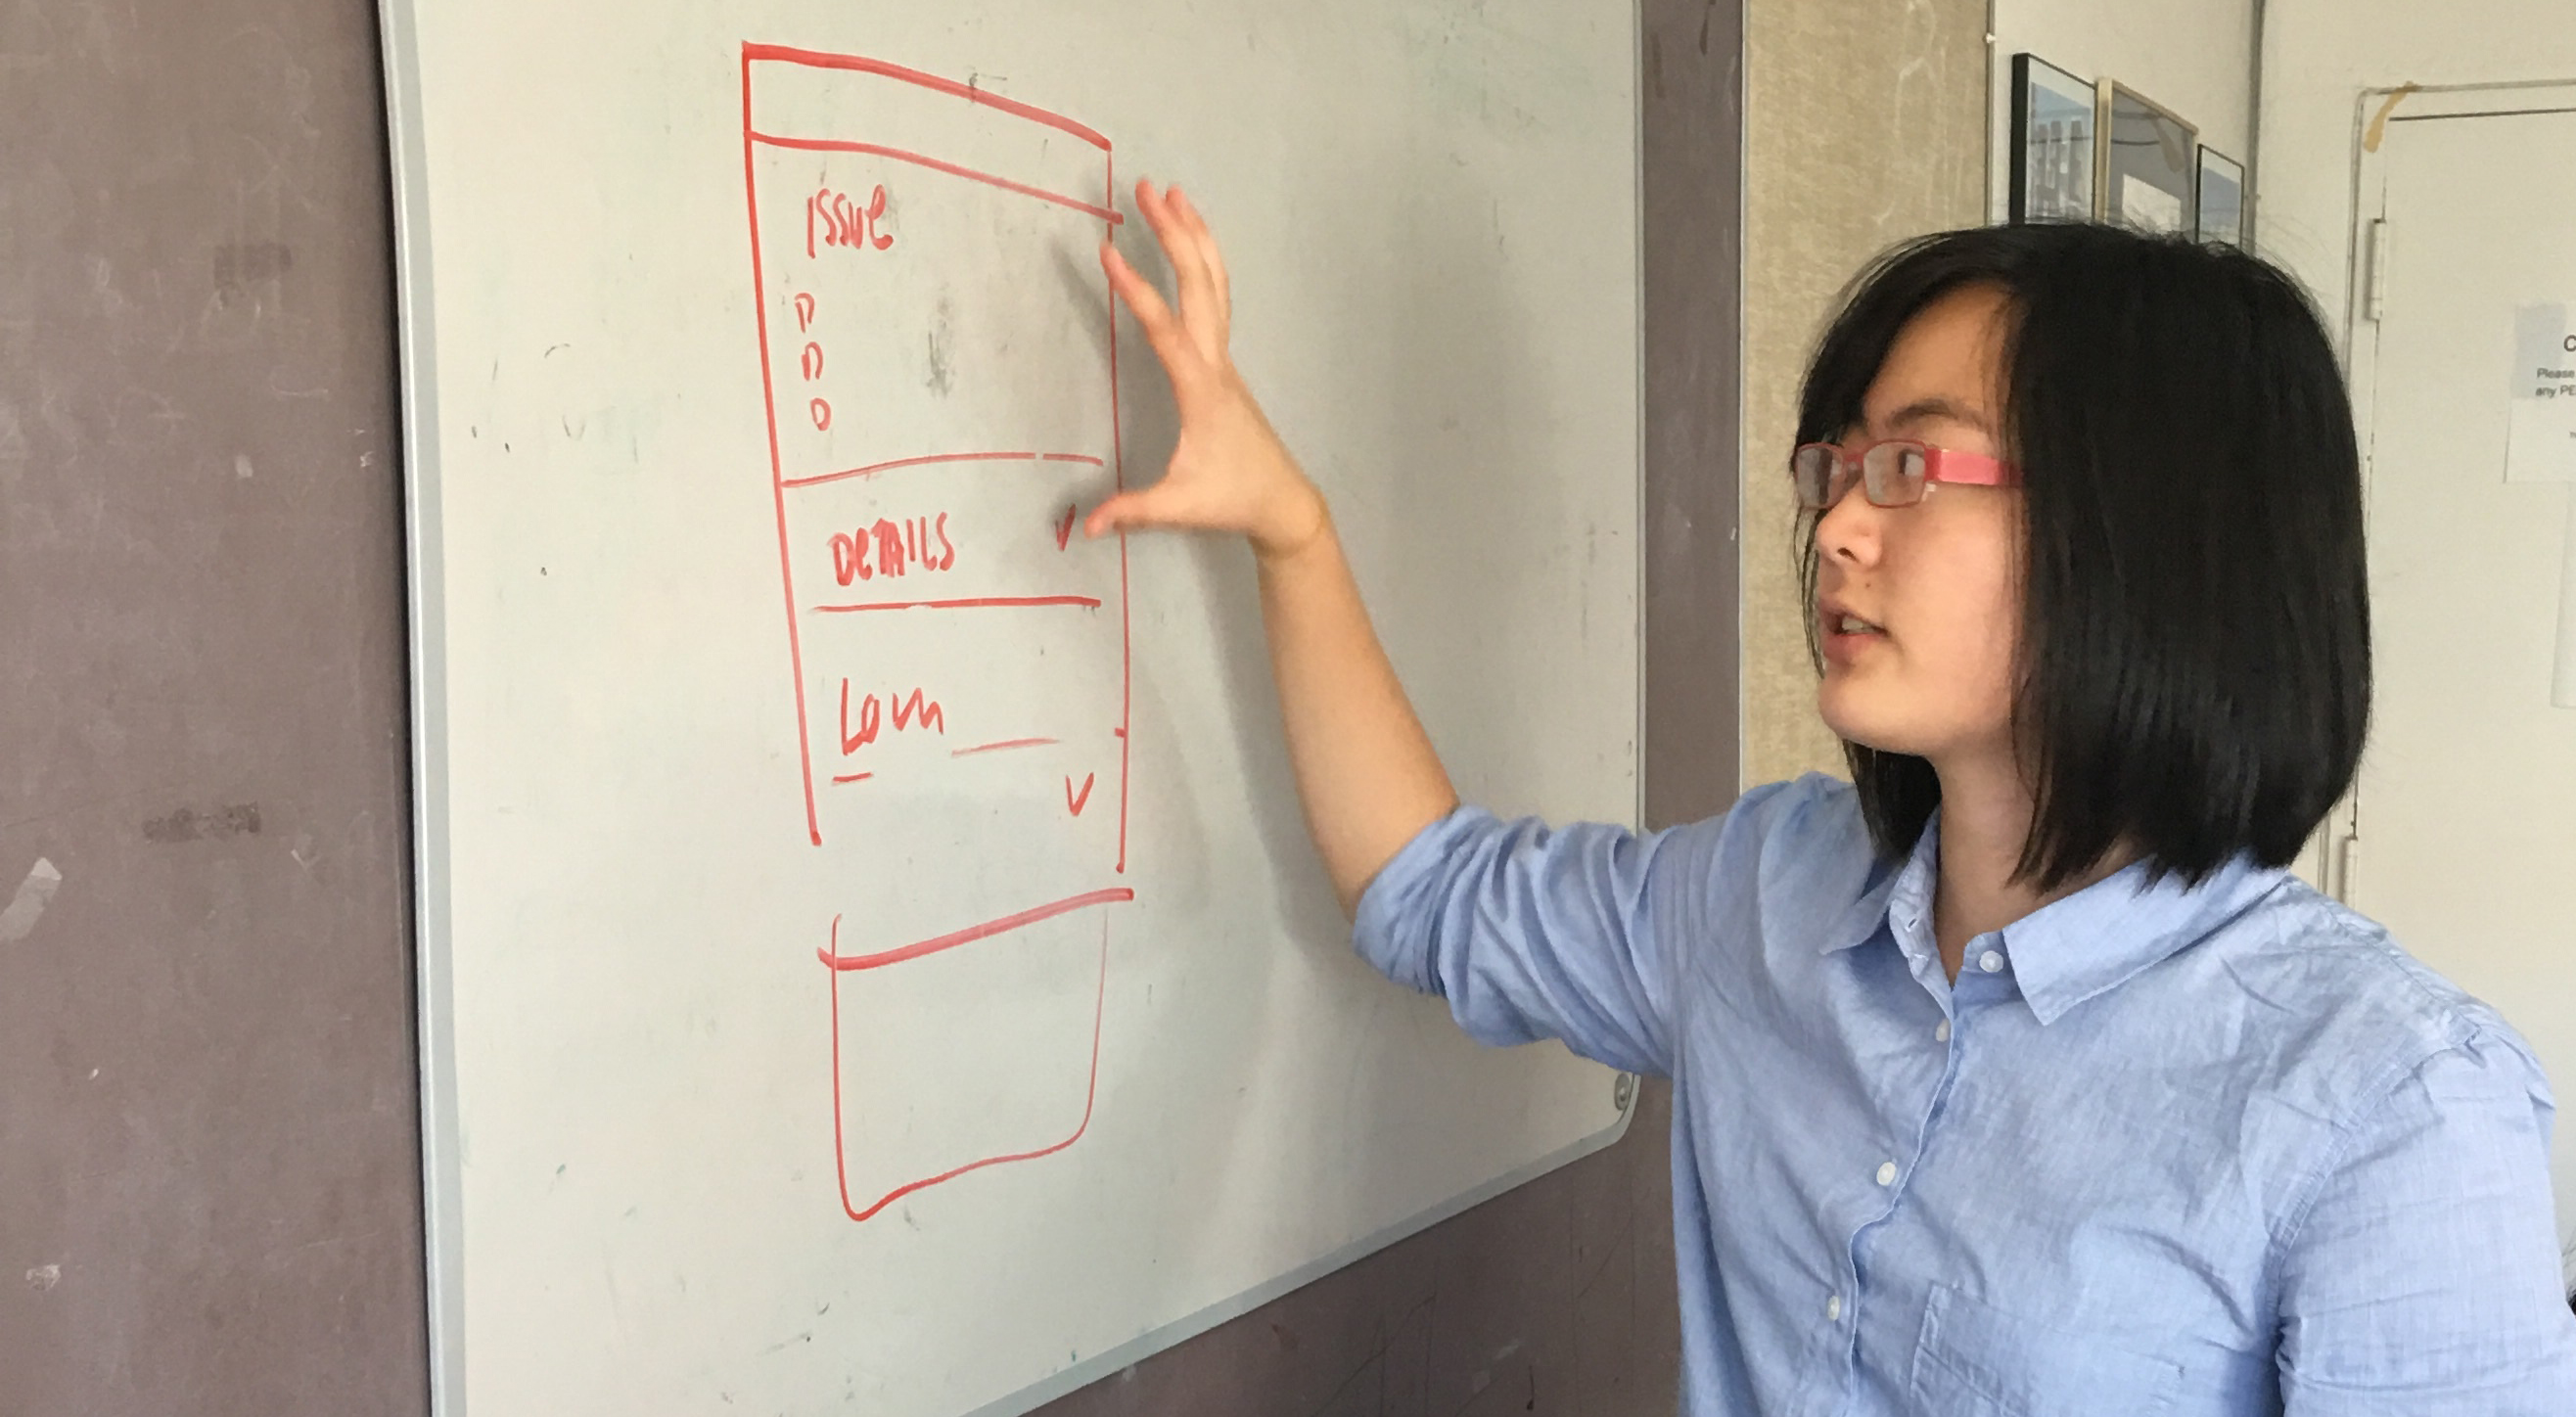 Issue
DETAILS V
V
C
Please
any PE